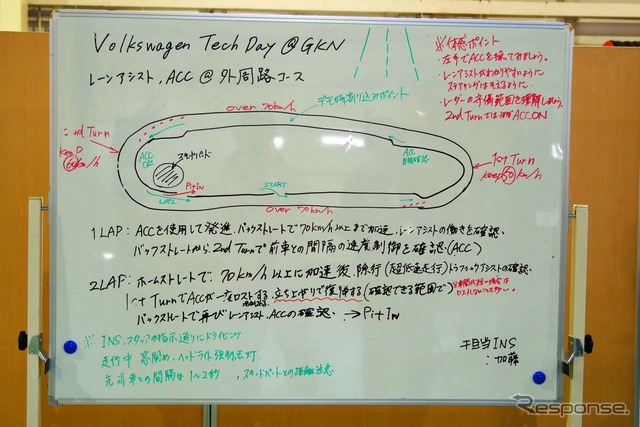 Volkswagen Tech Day @ GKN
レーンアシスト, ACC @ 外周路コース
※体感ポイント
・左手でACCを操ってみましょう。
・レーンアシストがわかりやすいように
ステアリングは
・レーダーの守備範囲を理解しましょう。
2nd Turnでは ACC ON
over 70km/h
デモ時割り込みポイント
2nd Turn
keep
60km/h
ACC OK
スキッドパッド
ACC
1st Turn
keep 50 km/h
Pit In
LAP2
START
over 70km/h
1LAP: ACCを使用して発進、バックストレートで70km/h以上まで加速、レーンアシストの働きを確認、
バックストレートから、2nd Turnで前車との間隔の速度制御を確認(ACC)
2LAP: ホームストレートで、70km/h以上に加速後、除行(超低速走行)トラフィックアシストの確認、
1st TurnでACCが一度ロストする、立ち上がりで復帰する(確認できる範囲で)
バックストレートで再びレーンアシスト、ACCの確認、→Pit In
※ INS、スタッフの指示通りにドライビング
走行中 窓閉め、ヘッドライト強制点灯
先前車との間隔は1〜2秒
担当INS
:加藤
Response.